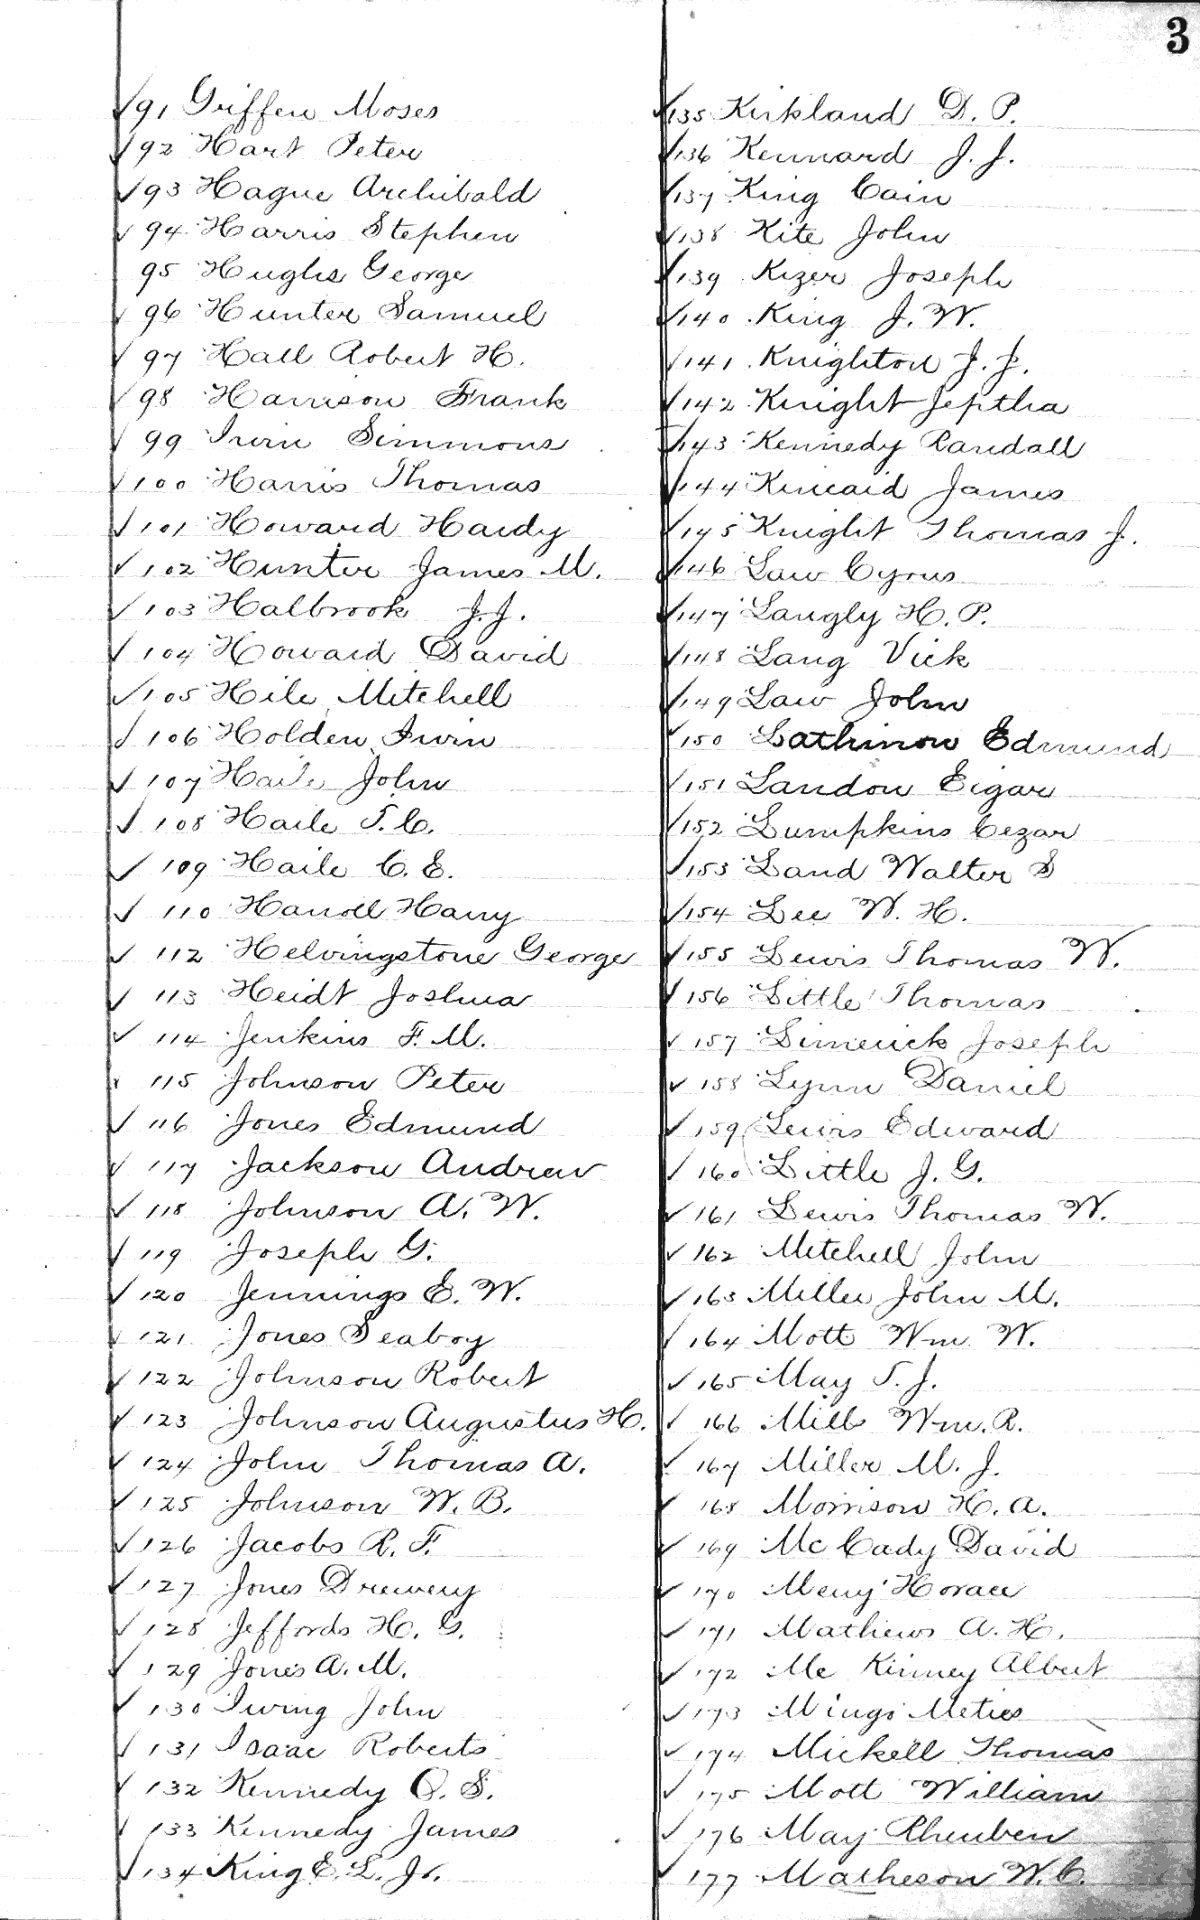 3
91 Griffen Moses
92 Hart Peter
93 Hague Archibald
94 Harris Stephen
95 Hughs George
96 Hunter Samuel
97 Hall Robert H.
98 Harrison Frank
99 Irvin Simmons
100 Harris Thomas
101 Howard Hardy
102 Hunter James M.
103 Halbrook J.J.
104 Howard David
105 Hile Mitchell
106 Holden Irvin
107 Haile John
108 Haile T. C.
109 Haile C. E.
110 Harrell Harry
112 Helvingstone George
113 Heidt Joshua
114 Jenkins F. M.
115 Johnson Peter
116 Jones Edmund
117 Jackson Andrew
118 Johnson A. W.
119 Joseph G.
120 Jennings E. W.
121 Jones Seaboy
122 Johnson Robert
123 Johnson Augustus H.
124 John Thomas A.
125 Johnson W. B.
126 Jacobs R. F.
127 Jones Drewery
128 Jeffords H. G.
129 Jones A. M.
130 Irving John
131 Isaac Roberts
132 Kennedy O. S.
133 Kennedy James
134 King E. L. Jr.
135 Kirkland D. P.
136 Kennard J. J.
137 King Cain
138 Kite John
139 Kizer Joseph
140 King J. W.
141 Knighton J. J.
142 Knight Jeptha
143 Kennedy Randall
144 Kincaid James
145 Knight Thomas J.
146 Law Cyrus
147 Langly H. P.
148 Lang Vick
149 Law John
150 Lathinon Edmund
151 Landon Eigar
152 Lumpkins Cezar
153 Land Walter S
154 Lee W. H.
155 Lewis Thomas W.
156 Little Thomas
157 Limerick Joseph
158 Lynn Daniel
159 Lewis Edward
160 Little J. G.
161 Lewis Thomas W.
162 Mitchell John
163 Miller John M.
164 Mott Wm. W.
165 May T. J.
166 Mills Wm. R.
167 Miller M. J.
168 Morrison H. A.
169 Mc Cady David
170 Merry Horace
171 Mathews A. H.
172 Mc Kinney Albert
173 Mingo Meties
174 Mickell Thomas
175 Mott William
176 May Rheuben
177 Matheson W. C.